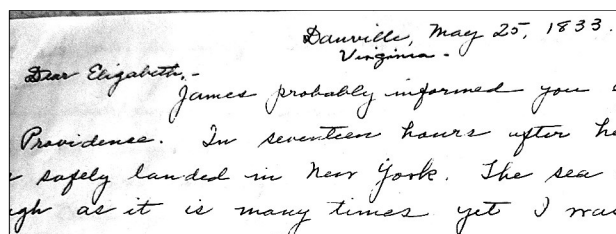 Danville, May 25, 1833.
Virginia.
Dear Elizabeth,-
James probably informed you
Providense. In seventeen hours after he
safely landed in New York. The sea
gh as it is many times yet I was